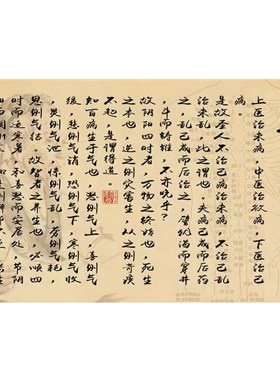 上医治未病，中医治欲病，下医治已
病。
故圣人不治已病治未病，不治已乱
治未乱，此之谓也。夫病已成而后药
之，乱已成而后治之，譬犹渴而穿井
，斗而铸锥，不亦晚乎？
故阴阳四时者，万物之终始也，死生
之本也，逆之则灾害生，从之则苛疾
不起，是谓得道。
知百病生于气也，怒则气上，喜则气
缓，悲则气消，恐则气下，寒则气收
，炅则气泄，惊则气乱，劳则气耗，
思则气结。故智者之养生也，必顺四
时而适寒暑，和喜怒而安居处，节阴